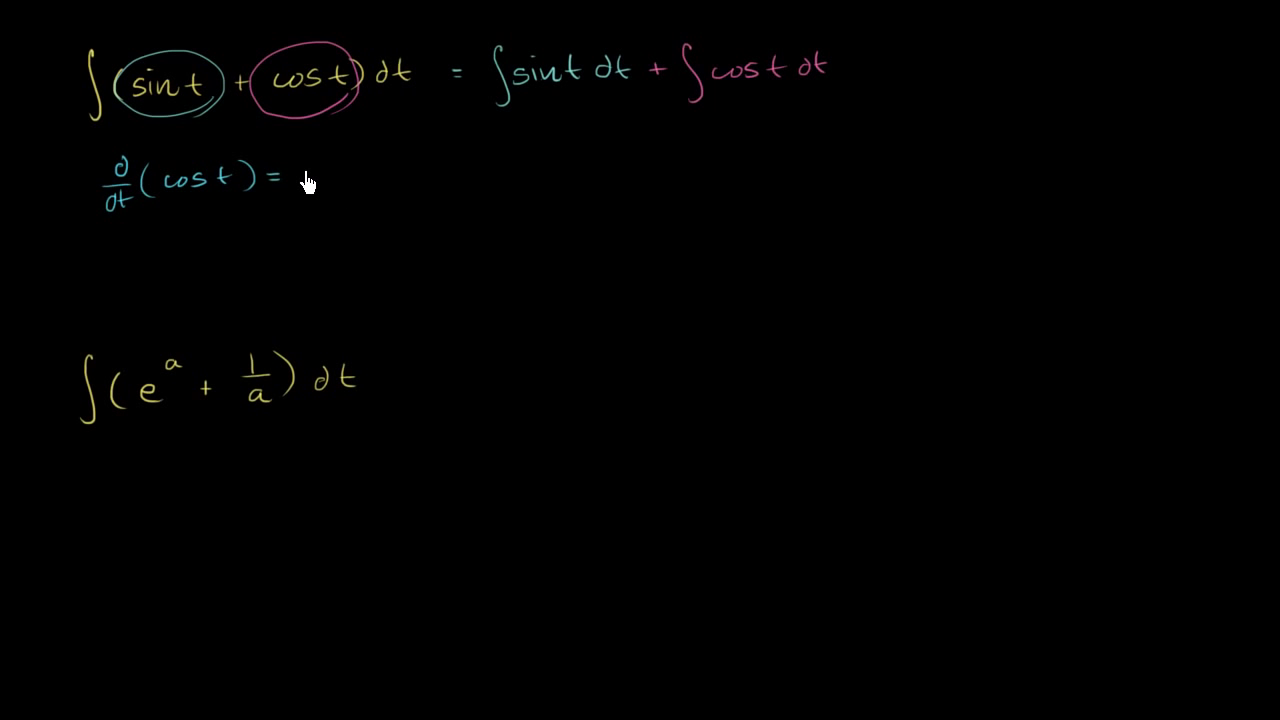 ∫(sin t + cos t) dt = ∫sin t dt + ∫cos t dt
d/dt (cos t) =
∫(e^a + 1/a) dt